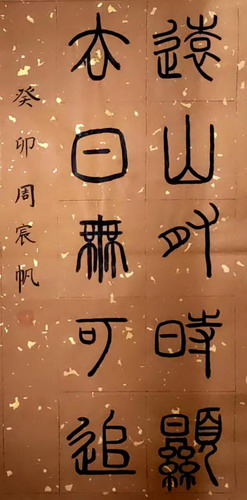 遠山有時顯
去日無可追
癸卯周宸帆